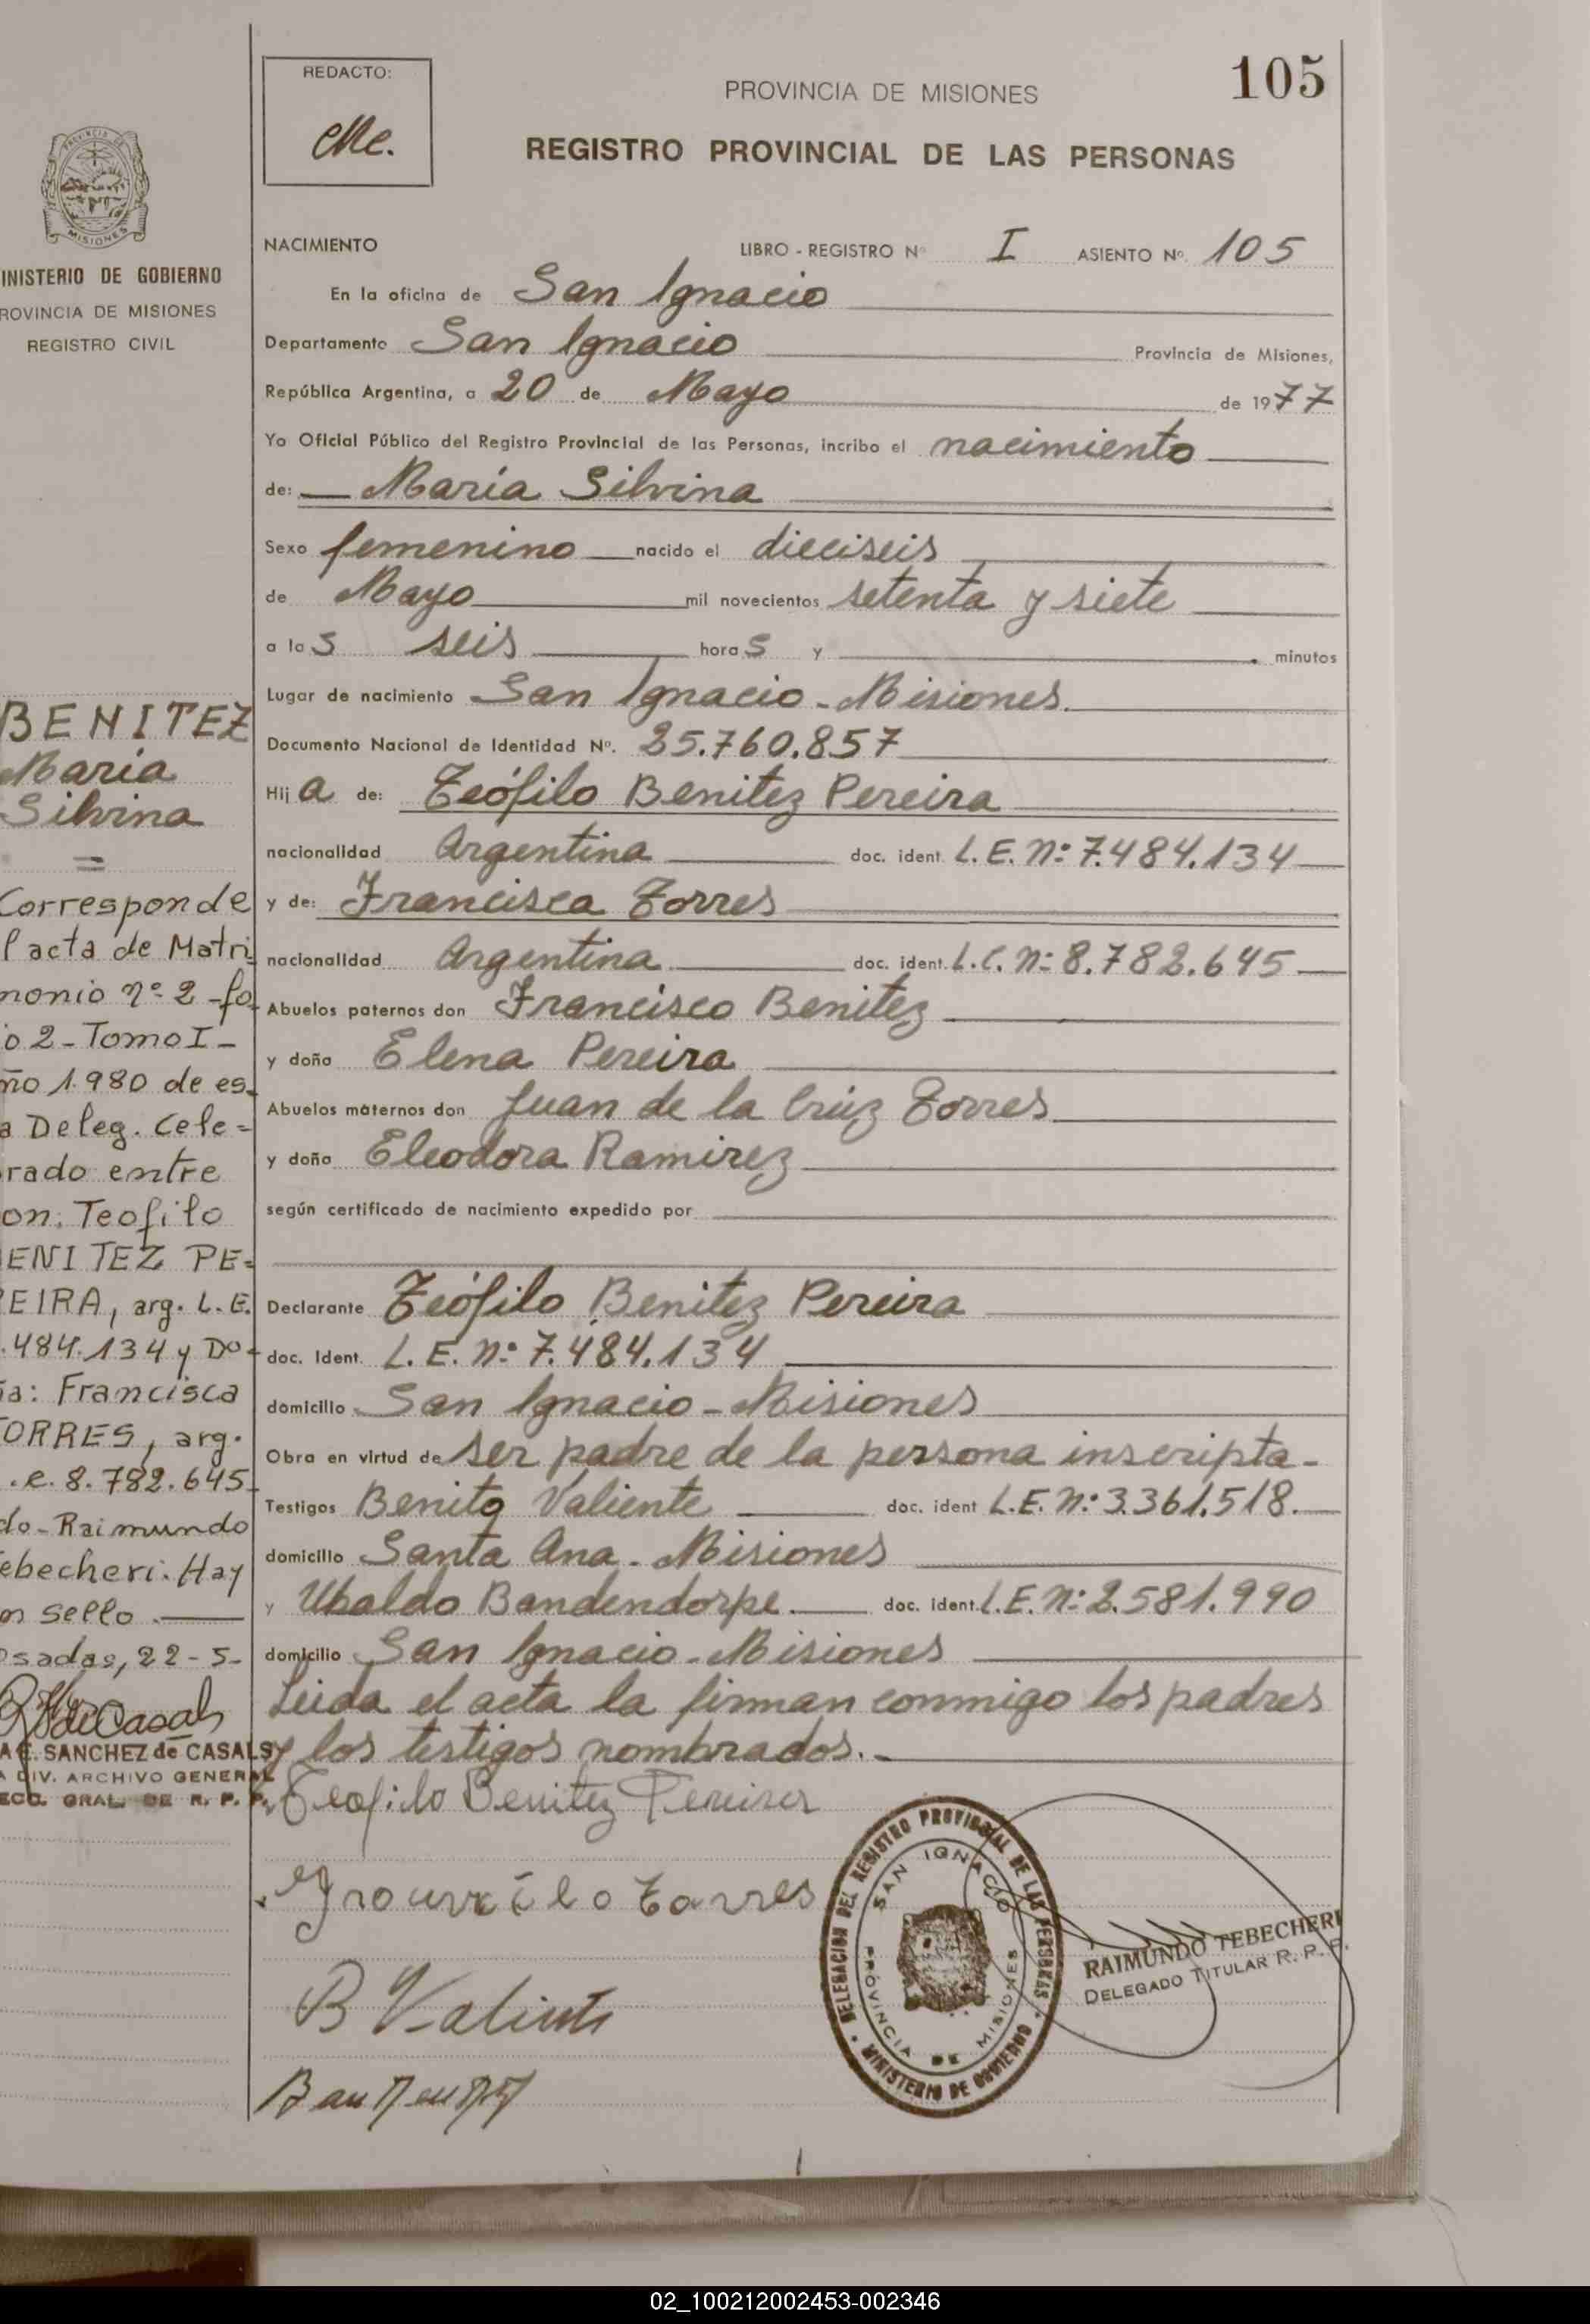 REDACTO:
PROVINCIA DE MISIONES
105
REGISTRO PROVINCIAL DE LAS PERSONAS
NACIMIENTO LIBRO - REGISTRO Nº I ASIENTO Nº 105
En la oficina de San Ignacio
Departamento San Ignacio Provincia de Misiones,
República Argentina, a 20 de Mayo de 1977
Yo Oficial Público del Registro Provincial de las Personas, incribo el nacimiento
de: María Silvina
Sexo femenino nacido el dieciseis
de Mayo mil novecientos setenta y siete
a las seis horas y minutos
Lugar de nacimiento San Ignacio - Misiones.
Documento Nacional de Identidad Nº. 25.760.857
Hija de: Teófilo Benitez Pereira
nacionalidad Argentina doc. ident. L.E. Nº 7.484.134
y de: Francisca Torres
nacionalidad Argentina doc. ident. L.C. Nº 8.782.645
Abuelos paternos don Francisco Benitez
y doña Elena Pereira
Abuelos maternos don Juan de la Crúz Torres
y doña Eleodora Ramirez
según certificado de nacimiento expedido por
Declarante Teófilo Benitez Pereira
doc. Ident. L.E. Nº 7.484.134
domicilio San Ignacio - Misiones
Obra en virtud de ser padre de la persona inscripta -
Testigos Benito Valiente doc. ident L.E. Nº 3.361.518.
domicilio Santa Ana - Misiones
y Ubaldo Bandendorpe. doc. ident. L.E. Nº 2.581.990
domicilio San Ignacio - Misiones
Leida el acta la firman conmigo los padres
y los testigos nombrados.
Teofilo Benitez Pereira
B Valiente
DELEGACION DEL REGISTRO PROVINCIAL DE LAS PERSONAS
MINISTERIO DE GOBIERNO
SAN IGNACIO
PROVINCIA DE MISIONES
RAIMUNDO TEBECHERI
DELEGADO TITULAR R. P. P.
MISIONES
INISTERIO DE GOBIERNO
ROVINCIA DE MISIONES
REGISTRO CIVIL
BENITEZ
María
Silvina
=
Corresponde
l acta de Matri
monio nº 2 - fo
o 2 - Tomo I -
ño 1.980 de es
a Deleg. Cele=
rado entre
on: Teofilo
ENITEZ PE=
EIRA, arg. L.E.
.484.134 y Do
ia: Francisca
ORRES, arg.
.e. 8.782.645
do - Raimundo
ebecheri. Hay
un sello.
osadas, 22-5-
A C. SANCHEZ de CASALS
A DIV. ARCHIVO GENERAL
ECC. GRAL. DE R. P. P.
02_100212002453-002346